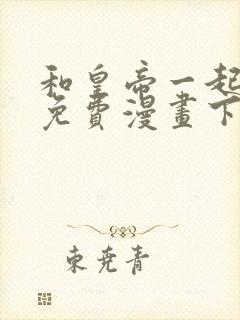 和皇帝一起
免費漫畫下
東堯青